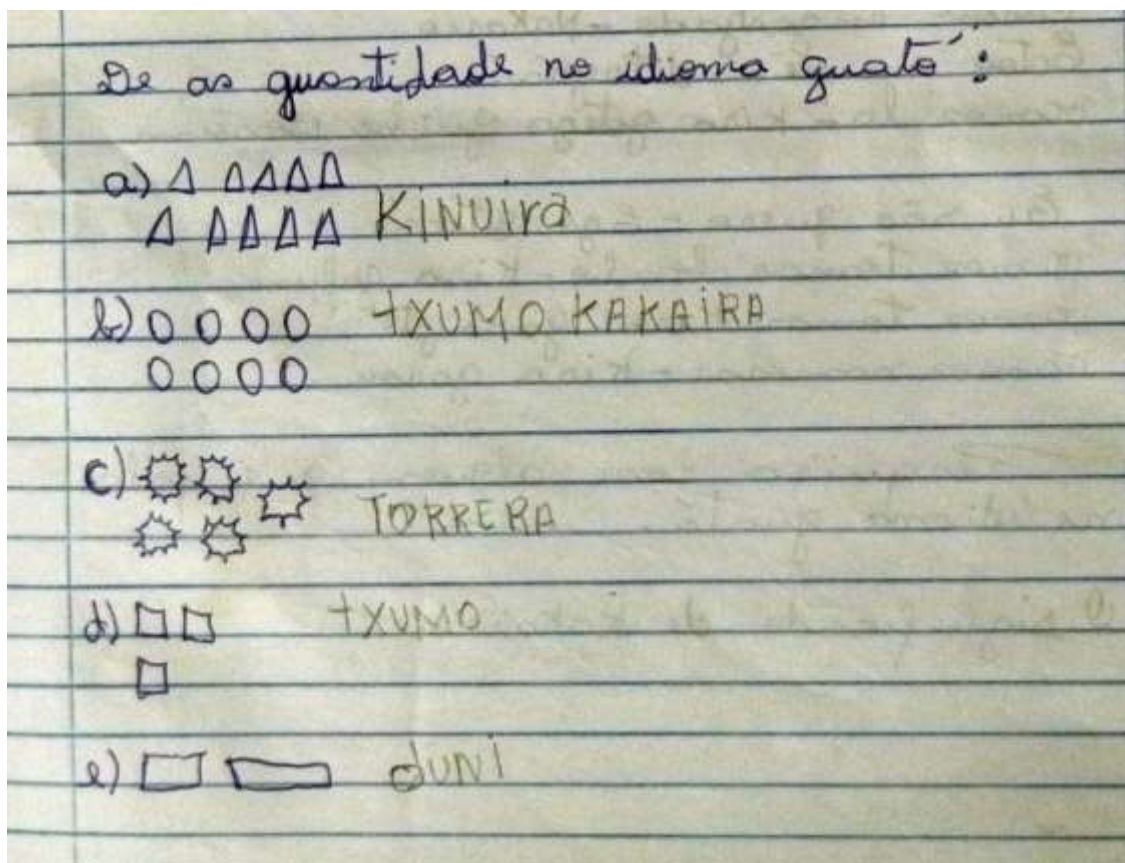 De as quantidade no idioma guató:
a) KiNUira
b) txUMO KAKAiRA
c) TORRERA
d) txUMO
e) dUNi